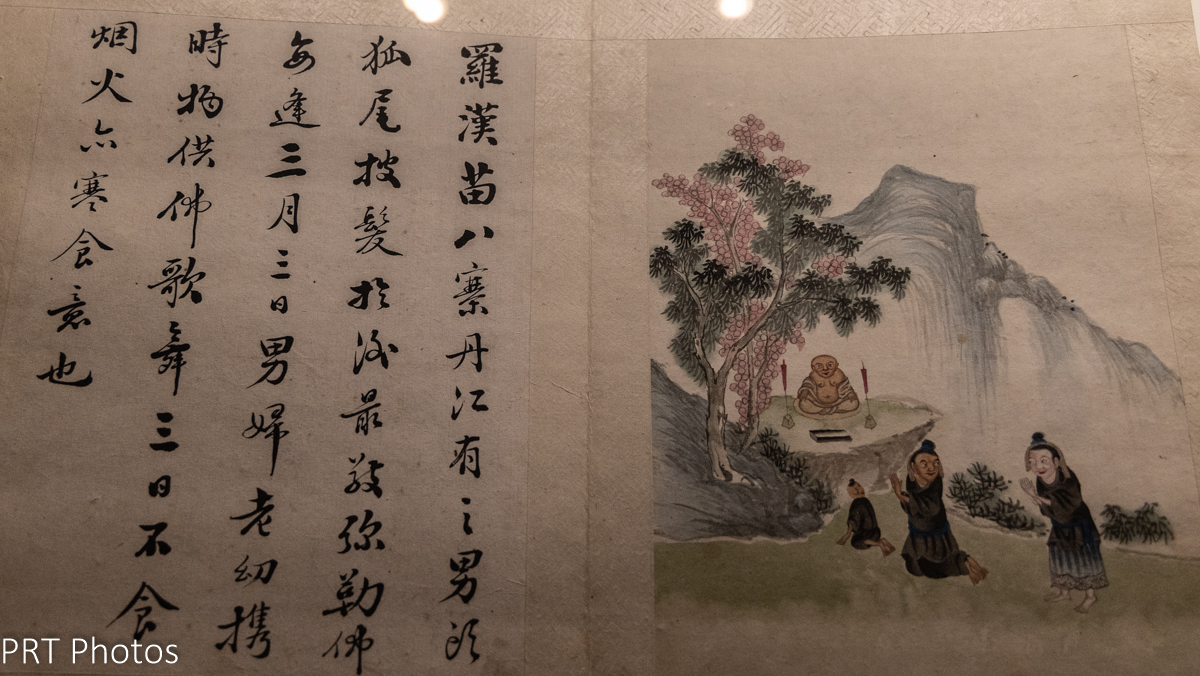 羅漢苗八寨丹江有之男
狐尾披髮於後最敬弥勒佛
每逢三月三日男婦老幼携
時物供佛歌舞三日不食
烟火亦寒食意也
PRT Photos